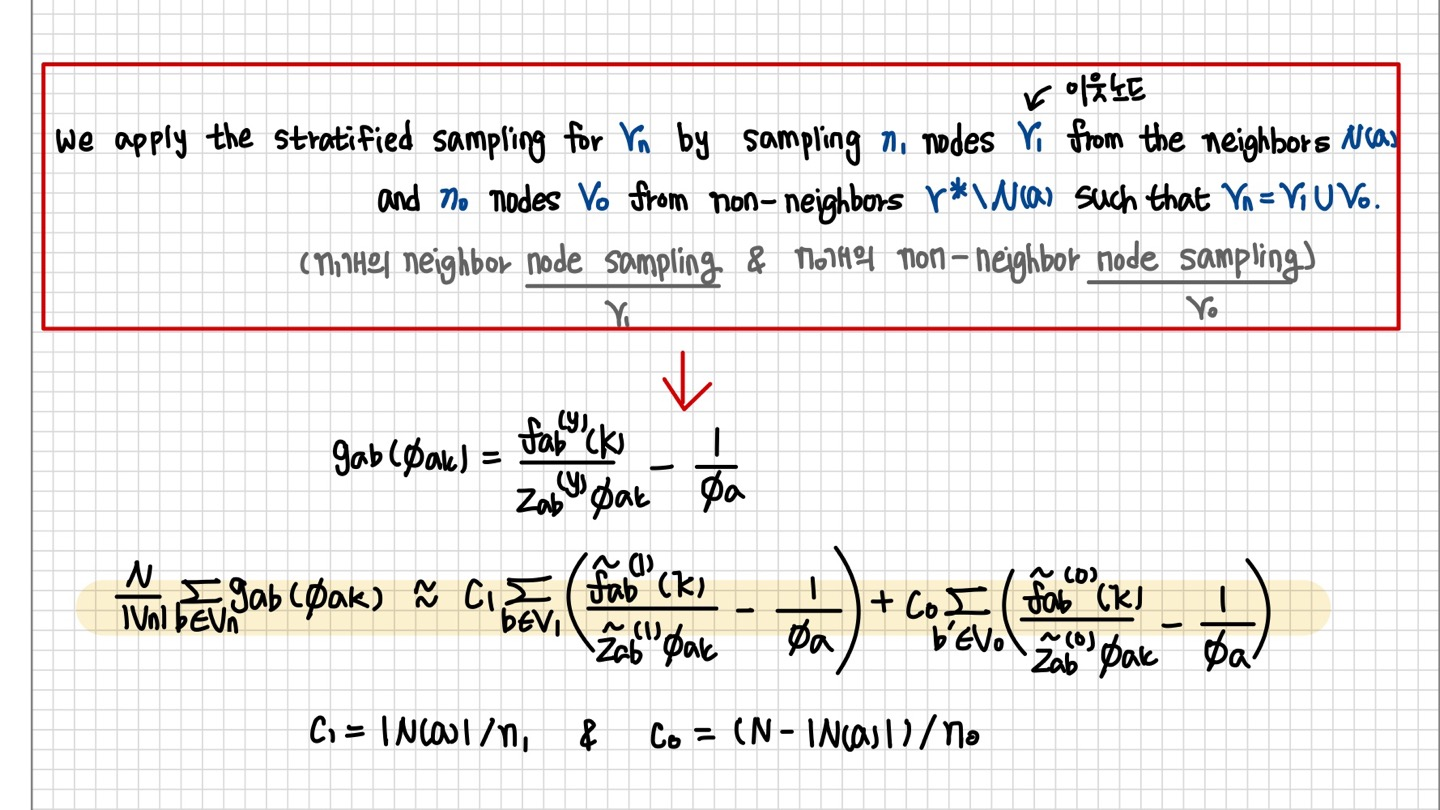 이웃노드
We apply the stratified sampling for Vn by sampling n₁ nodes V₁ from the neighbors N(a)
and n₀ nodes V₀ from non-neighbors V*\N(a) such that Vn = V₁ ∪ V₀.
(n₁개의 neighbor node sampling & n₀개의 non-neighbor node sampling)
V₁ V₀
gab(ϕak) = fab⁽ʸ⁾(k) / Zab⁽ʸ⁾ϕak − 1/ϕa
N/|Vn| ∑b∈Vn gab(ϕak) ≈ C₁ ∑b∈V₁ (f̃ab⁽¹⁾(k) / Z̃ab⁽¹⁾ϕak − 1/ϕa) + C₀ ∑b'∈V₀ (f̃ab⁽⁰⁾(k) / Z̃ab⁽⁰⁾ϕak − 1/ϕa)
C₁ = |N(a)|/n₁ & C₀ = (N-|N(a)|)/n₀